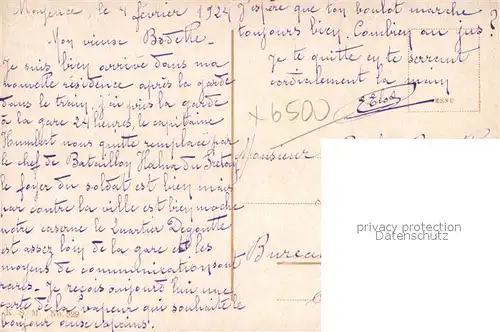 Mayence, le 4 février 1924
Mon vieux Bodette
Je suis bien arrivé dans ma
nouvelle résidence après la garde
dans le train j'ai pris la garde
à la gare 24 heures, le capitaine
Humbert nous quitte remplacé par
le chef de Bataillon Hahn du
le foyer du soldat est bien mais
par contre la ville est bien moche
notre caserne le Quartier
est assez loin de la gare et les
moyens de communication sont
rares. Je reçois aujourd'hui une
carte de la vapeur qui souhaite le
bonjour aux copains.
K. S. M. No. 539
J'espère que ton boulot marche
toujours bien. Combien au jus ?
Je te quitte en te serrant
cordialement la main
x 6500
Monsieur
Bureau
privacy protection
Datenschutz